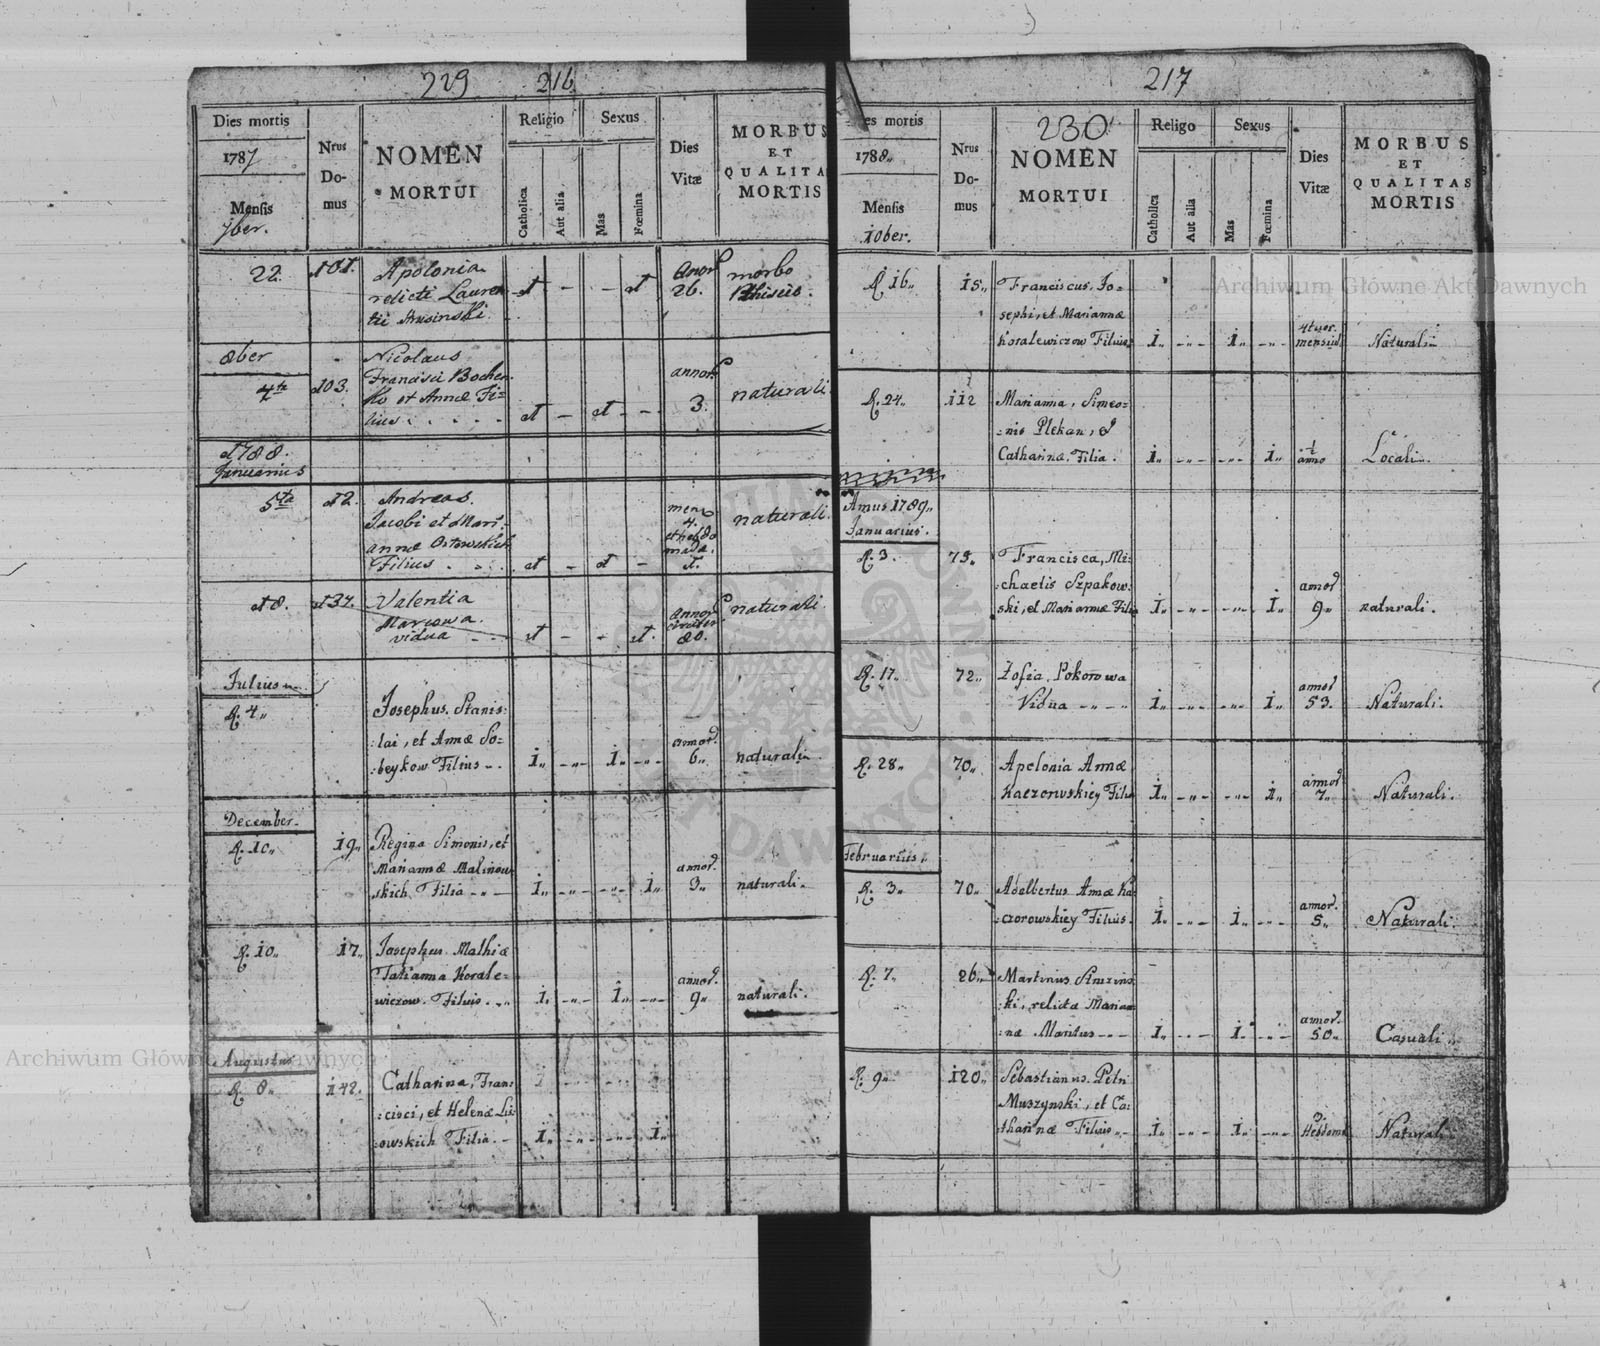 229 216
Dies mortis
1787
Mensis
7ber.
Nrus
Do-
mus
NOMEN
MORTUI
Religio
Catholica
Aut alia
Sexus
Mas
Fœmina
Dies
Vitæ
MORBUS
ET
QUALITA
MORTIS
22. 101. Apolonia
relicti Lauren
tii
annor
26.
morbo
8ber
4ta 103.
Nicolaus
Francisci Bochen
ko et Annæ Fi-
lius
annor
3.
naturali
1788.
Januarius
5ta 12.
Andreas
Jacobi et Mari-
annæ Ostowskich
Filius
mens
4.
et hebdo
mada
1.
naturali.
18. 137.
Valentia
Marcowa.
vidua
annor
circiter
80.
naturali
Julius
R. 4„
Josephus Stanis:
:lai, et Annæ So:
:beykow Filius
1„ 1„
annor.
6„
naturali„
December.
R. 10„ 19„
Regina Simonis, et
Mariannæ Malinow
skich Filia
1„ 1„
annor.
3„
naturali„
R. 10„ 17„
Josephus Mathiæ
Tatianna Korale-
wiczow. Filius
1„ 1„
annor.
9„
naturali.
Augustus
R. 8„ 142„
Catharina, Fran:
:cisci, et Helenæ Lis
:owskich Filia
1„ 1„
217
Dies mortis
1788„
Mensis
10ber.
Nrus
Do-
mus
230
NOMEN
MORTUI
Religo
Catholica
Aut alia
Sexus
Mas
Fœmina
Dies
Vitæ
MORBUS
ET
QUALITAS
MORTIS
R. 16„ 15„
Franciscus Jo=
sephi, et Mariannæ
Koralewiczow Filius
1„ 1„
4tuor.
mensium
Naturali
R. 24„ 112
Marianna, Simeo=
:nis Plekan, &
Catharinæ, Filia.
1„ 1„
1
anno
Locali
Annus 1789„
Januarius.
R. 3. 75„
Francisca, Mi:
:chaelis Szpakow:
:ski, et Mariannæ Filia
1„ 1„
annor
9„
naturali.
R. 17„ 72„
Zofia, Pokorowa
Vidua
1„ 1„
annor
53.
Naturali.
R. 28„ 70„
Apolonia Annæ
Kaczorowskiey Filia
1„ 1„
annor
7„
Naturali.
Februarius.
R. 3„ 70„
Adelbertus Annæ Ka:
:czorowskiey Filius.
1„ 1„
annor.
5„
Naturali.
R. 7„ 26„
Martinus
:ki, relictæ Marian
:næ Maritus
1„ 1„
annor.
50„
Casuali„
R. 9„ 120„
Sebastianus Petri
Muszynski, et Ca:
:tharinæ Filius
1„ 1„
Hebdoma
Naturali
Archiwum Główne Akt Dawnych
Archiwum Główne Akt Dawnych